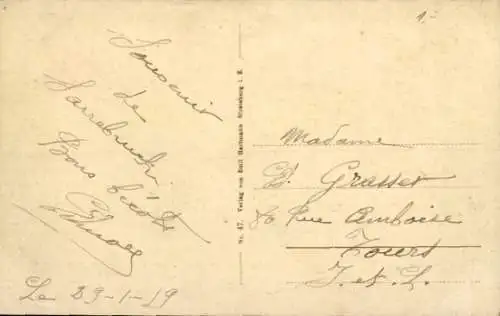 1.-
Souvenir
de
Sarrebruck
Bons baisers
Le 29-1-19
No. 47. Verlag von Emil Hartmann Strassburg i. E.
Madame
Grasset
Rue Amboise
Tours
I. et L.